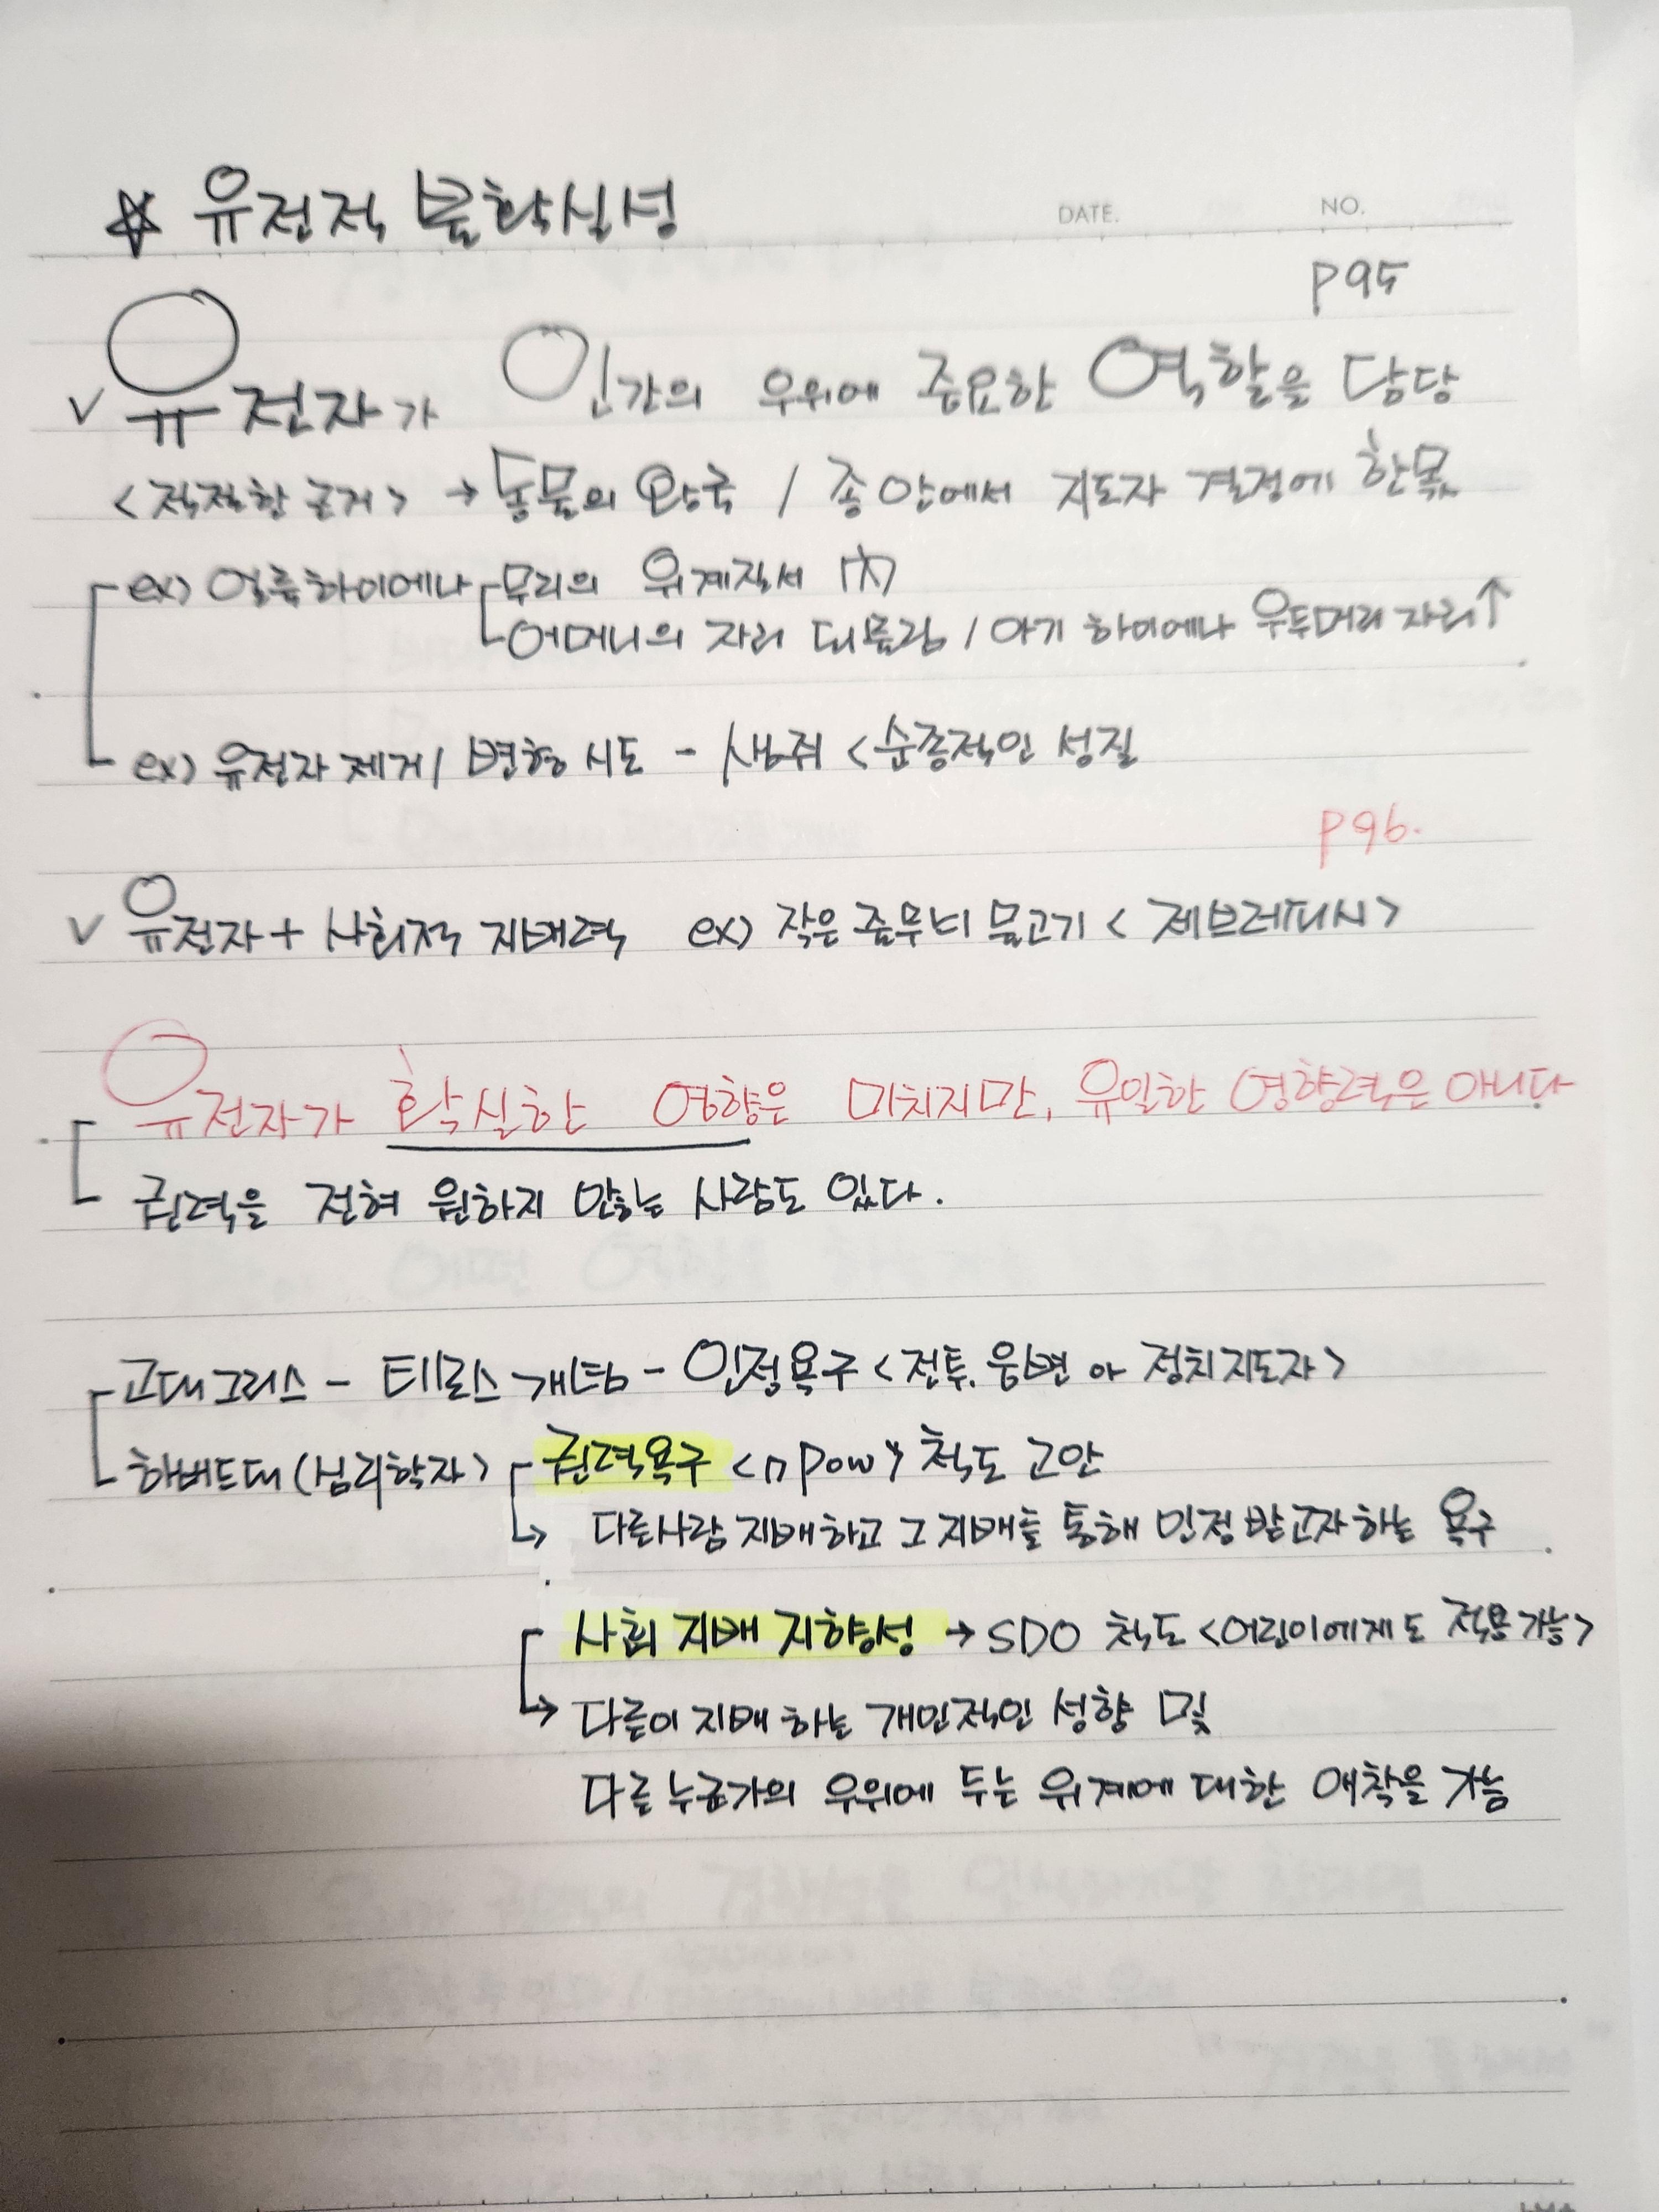 ☆ 유전적 불확실성
DATE. NO.
p95
∨ 유전자가 인간의 우위에 중요한 역할을 담당
<적절한 근거> → 동물의 왕국 / 종 안에서 지도자 결정에 한몫
ex) 얼룩하이에나 무리의 위계질서 大
어머니의 자리 대물림 / 아기 하이에나 우두머리 자리↑
ex) 유전자 제거/ 변형 시도 - 생쥐 <순종적인 성질
p96.
∨ 유전자 + 사회적 지배력 ex) 작은 줄무늬 물고기 <제브레피시>
유전자가 확실한 영향은 미치지만, 유일한 영향력은 아니다
권력을 전혀 원하지 않는 사람도 있다.
고대그리스 - 티모스 개념 - 인정욕구 <전투, 웅변 or 정치지도자>
하버드대 (심리학자) 권력욕구 <n pow> 척도 고안
다른사람 지배하고 그 지배를 통해 인정받고자 하는 욕구
사회 지배 지향성 → SDO 척도 <어린이에게도 적용 가능>
다른이 지배 하는 개인적인 성향 및
다른 누군가의 우위에 두는 위계에 대한 애착을 가늠